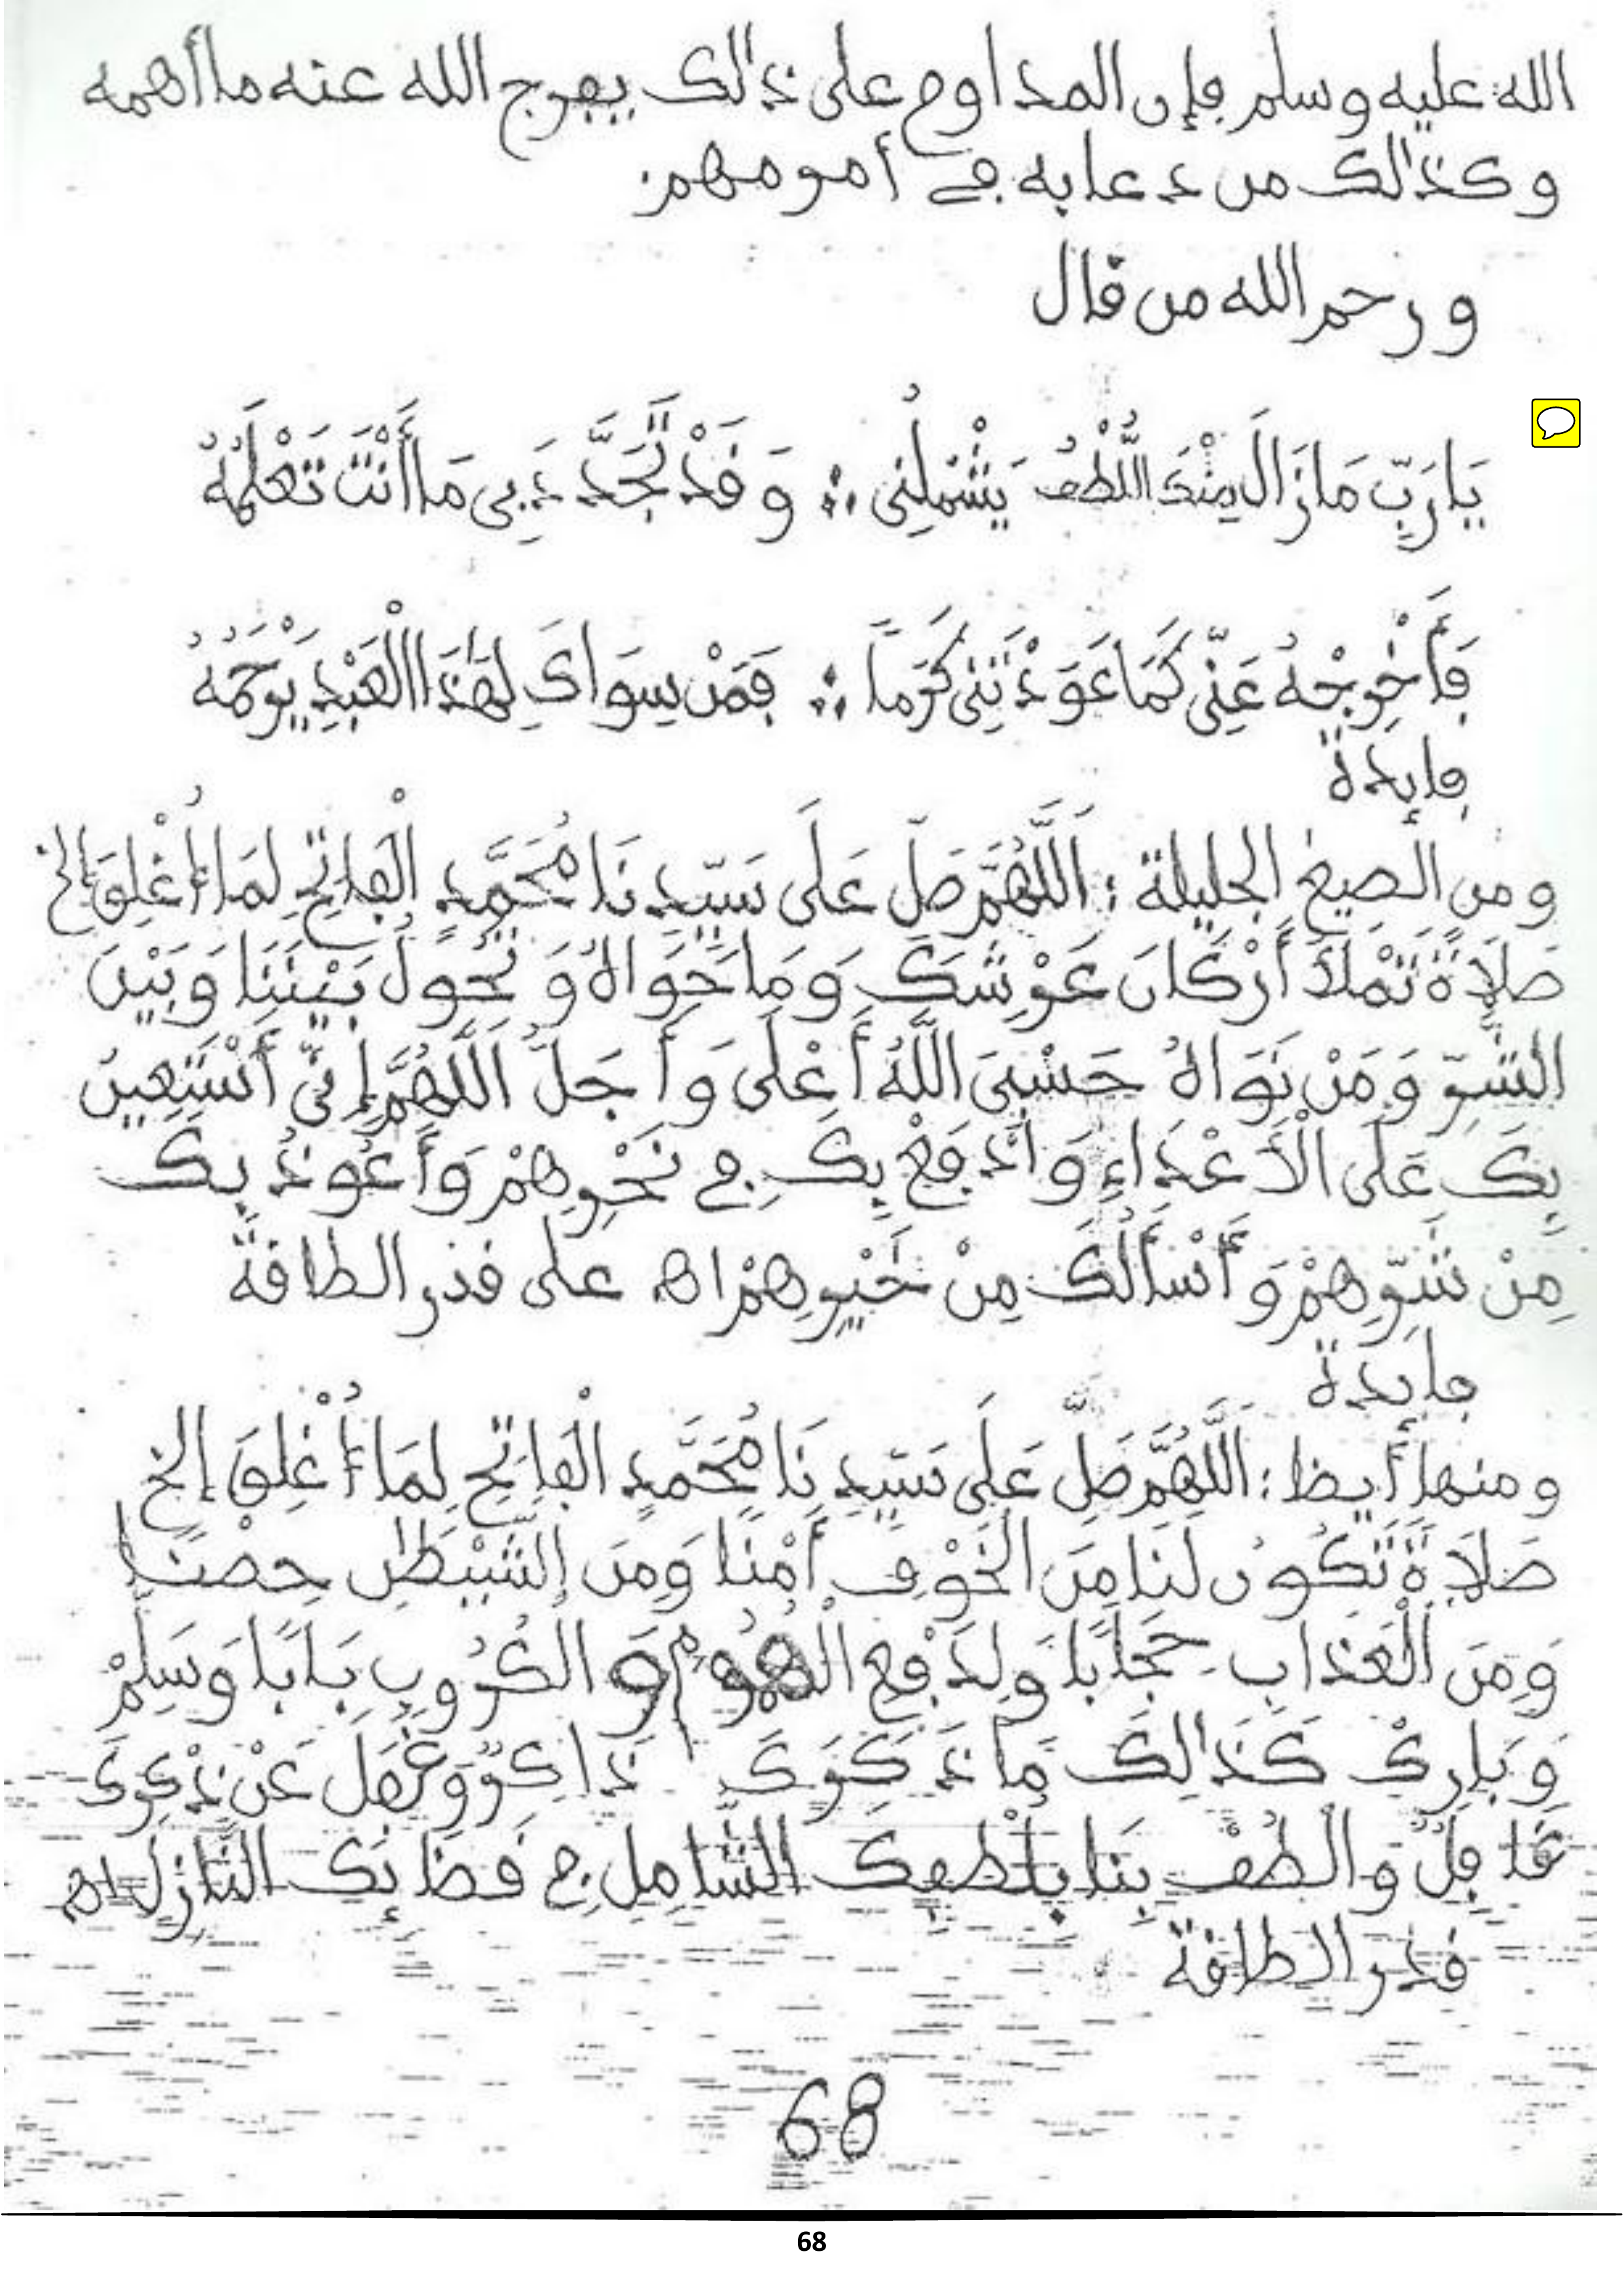 الله عليه وسلم فإن المداوم على ذالك يفرج الله عنه ما أهمه
وكذالك من دعا به في أمر مهم.
ورحم الله من قال
يَارَبِّ مَازَالَ مِنْكَ اللُّطْفُ يَشْمَلُنِي ∴ وَقَدْ تَجَدَّدَ بِي مَا أَنْتَ تَعْلَمُهُ
فَأَخْرِجْهُ عَنِّي كَمَا عَوَّدْتَنِي كَرَماً ∴ فَمَنْ سِوَاكَ لِهَذَا الْعَبْدِ يَرْحَمُهُ
فايدة
ومن الصيغ الجليلة: اَللَّهُمَّ صَلِّ عَلَى سَيِّدِنَا مُحَمَّدٍ الْفَاتِحِ لِمَا أُغْلِقَ إلخ
صَلَاةً تَمْلَأُ أَرْكَانَ عَرْشِكَ وَمَا حَوَاهُ وَتَحُولُ بَيْنَنَا وَبَيْنَ
الشَّرِّ وَمَنْ نَوَاهُ حَسْبِيَ اللَّهُ أَعْلَى وَأَجَلُّ اَللَّهُمَّ إِنِّي أَسْتَعِينُ
بِكَ عَلَى الْأَعْدَاءِ وَأَدْفَعُ بِكَ فِي نَحْرِهِمْ وَأَعُوذُ بِكَ
مِنْ شَرِّهِمْ وَأَسْأَلُكَ مِنْ خَيْرِهِمْ اهـ على قدر الطاقة
فايدة
ومنها أيظا: اَللَّهُمَّ صَلِّ عَلَى سَيِّدِنَا مُحَمَّدٍ الْفَاتِحِ لِمَا أُغْلِقَ إلخ
صَلَاةً تَكُونُ لَنَا مِنَ الْخَوْفِ أَمْنًا وَمِنَ الشَّيْطَٰنِ حِصْنًا
وَمِنَ الْعَذَابِ حِجَابًا وَلِدَفْعِ الْهُمُومِ وَالْكُرُوبِ بَابًا وَسَلِّمْ
وَبَارِكْ كَذَالِكَ مَا ذَكَرَكَ ذَاكِرٌ وَغَفَلَ عَنْ ذِكْرِكَ
غَافِلٌ وَالْطُفْ بِنَا بِلُطْفِكَ الشَّامِلِ فِي قَضَائِكَ النَّازِلِ اهـ
قدر الطاقة
68
68